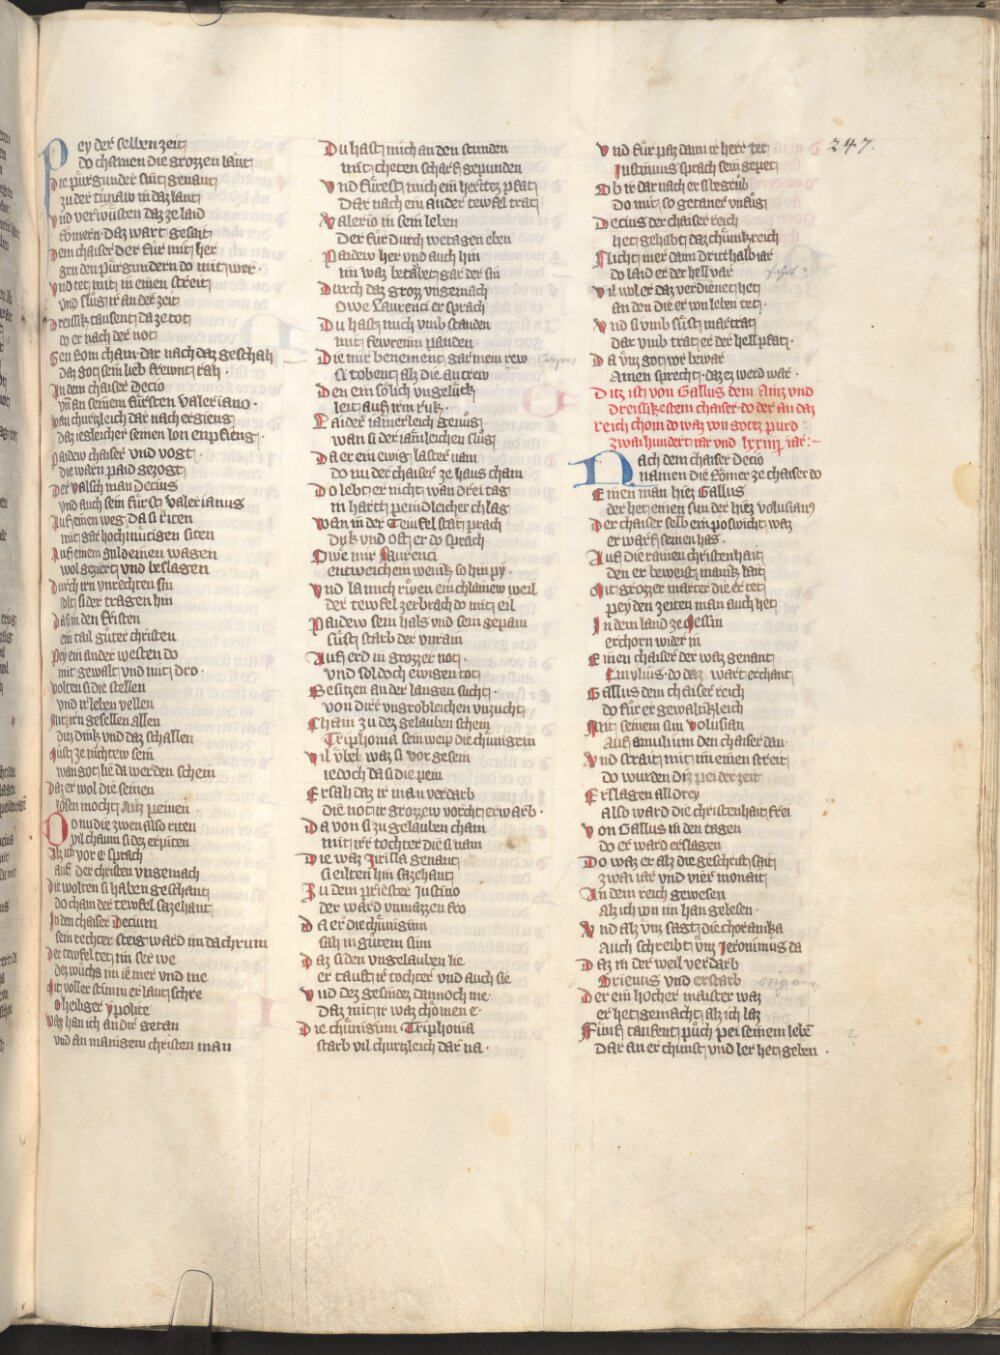 Pey der selben zeit
do chamen die grozzen laut
Die purgunder sint genant
zu der tunaw in daz lant
Vnd verwusten daz ze laid
Romern daz wart gesait
Dem chaiser der fur mit her
gen den purgundern do mit wer
Vnd tet mit in einen streit
vnd slug ir an der zeit
Dreissik tausent da ze tot
do er nach der not
Gen Rom cham dar nach daz geschah
daz got sein lieb frewnt rah
An dem chaiser Decio
vn an seinem fursten valeriano
Wan churtzleich dar nach ergieng
daz iegleicher seinen lon enpfieng
Paidew chaiser vnd vogt
die warn paid gezogt
Der valsch man Decius
vnd auch sein furst valerianus
Auf einen weg da si riten
mit gar hochmutigen siten
Auf einem guldeinen wagen
wol geziert vnd beslagen
Durch irn vnrechten sin
solt si der tragen hin
Da sin den fristen
ein tail guter christen
Pey ein ander westen do
mit gewalt vnd mit dro
Wolten si die stellen
vnd ir leben vellen
Mit irn gesellen allen
ditz dink vnd daz schallen
Must ze nichtew sein
wan got lie da werden schein
Daz er wol die seinen
losen mocht auz peinen
Do nu die zwen also riten
vil chaum si dez erpiten
Alz ich vor e sprach
auf der christen vngemach
Die wolten si haben geschant
do cham der tewfel sazehant
In den chaiser Decium
sein rechter steig ward im da chrum
Der tewfel tet im ser we
dez wuchs im ie mer vnd me
Mit voller stimm er laut schre
o heiliger ypolite
Waz han ich an dir getan
vnd an manigem christen man
Du hast mich an den stunden
mit cheten scharf gepunden
Vnd furest mich ein hertez pfat
Dar nach ein ander tewfel trat
Valerio in sein leben
Der fur durch wetagen eben
Paidew her vnd auch hin
im waz betaubet gar der sin
Durch daz groz vngemach
Owe Laurenci er sprach
Du hast mich vmb standen
mit fewreinn panden
Die mir benement gar mein rew
si tobent alz die antrew
Den ein solich vngeluck
leit auf irm ruk
Laider iamerleich genug
wan si der iamleichen slug
Da er ein ewig laster nam
do nu der chaiser ze haus cham
Do lebt er nicht wan drei tag
in hartt peindleicher chlag
Wan in der Teufel stat prach
dyk vnd oft er do sprach
Owe mir Laurenci
entweich ein wenik so hin py
Vnd la mich ruen ein chlainew weil
der tewfel zerbrach do mit eil
Paidew sein hals vnd sein gepain
sust starb der vnrain
Auf erd in grozzer not
vnd sol doch ewigen tot
Besitzen an der langen sucht
von dirr vngrobleichen vnzucht
Cham zu dez gelauben schein
Triphonia sein weip die chunigein
Vil vbel waz si vor gesein
iedoch da si die pein
Ersah daz ir man verdarb
die not ir grozzew vorcht erwarb
Da von si zu gelauben cham
mit irr tochter die si nam
Die waz Cirilla genant
si eilten hin sazehant
Zu dem priester Justino
der ward vnmazzen fro
Da er die chuniginn
sah in gutem sinn
Daz si den vngelauben lie
er tauft ir tochter vnd auch sie
Vnd dez gesindez dannoch me
daz mit ir waz chomen e
Die chuniginn Triphonia
starb vil churtzleich dar na
Vnd fur paz dann ir herr tet
Justinus sprach sein gepet
Ob ir dar nach er si begrub
do mit so getaner vnfug
Decius der chaiser reich
het gehabt daz chunikreich
Nicht mer dann drithalb iar
do laid er der hell var
Vil wol er daz verdienet het
an den die er von leben tet
Vnd si vmb sust martrat
dar vmb trat er der hell pfat
Da vor vns got vor bewar
Amen sprecht daz ez werd war
Ditz ist von Gallus dem ainz vnd
dreissikestem chaiser do der an daz
reich chom do waz von gotez purd
zwaihundert iar vnd lxxiiij iar
Nach dem chaiser Decio
namen die Romer ze chaiser do
Einen man hiez Gallus
der het einen sun der hiez volusianus
Der chaiser selb ein poswicht waz
er warf seinen has
Auf die rainen christenhait
den er beweist manik lait
Mit grozzer marter die er tet
pey den zeiten man auch het
In dem land ze Messin
erchorn wider in
Einen chaiser der waz genant
Emylius do daz wart erchant
Gallus dem chaiser reich
do fur er gewaltikleich
Mit seinem sun Volusian
Auf amulium den chaiser dan
Vnd strait mit im einen streit
do wurden ditz pei der zeit
Erslagen all drey
also ward die christenhait frei
Von Gallus in den tagen
do er ward erslagen
Do waz er alz die geschrift sait
zwai iar vnd vier monait
An dem reich gewesen
alz ich von im han gelesen
Vnd alz vns sagt die choranika
Auch schreibt vns Jeronimus da
Daz in der weil verdarb
Orienus vnd erstarb
Der ein hocher maister waz
er het gemacht alz ich laz
Funf tausent puch pei seinem lebn
dar an er chunst vnd ler het geben
247.